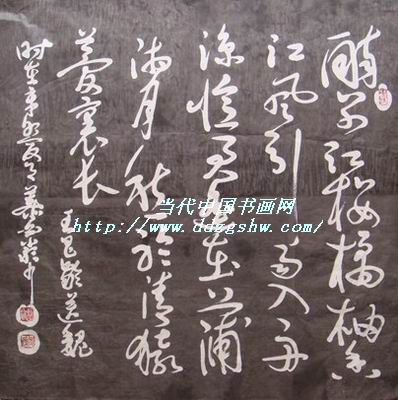 醉别江楼橘柚香
江风引雨入舟
凉忆君遥在潇
湘月愁听清猿
梦里长
王昌龄送魏
时在
当代中国书画网
http://www.ddzgshw.com/